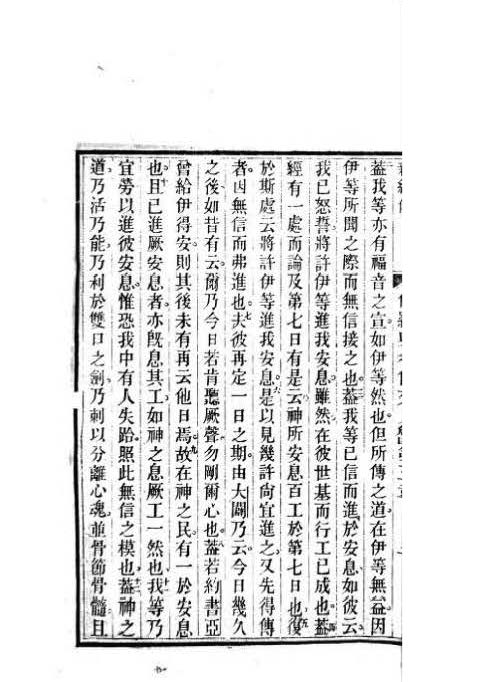 蓋我等亦有福音之宣如伊等然也但所傳之道在伊等無益因
伊等所聞之際而無信接之也蓋我等已信而進於安息如彼云
我已怒誓將許伊等進我安息雖然在彼世基而行工已成也蓋
經有一處而論及第七日有是云神所安息百工於第七日也復
於斯處云將許伊等進我安息是以見幾許尙宜進之又先得傳
者因無信而弗進也夫彼再定一日之期由大闢乃云今日幾久
之後如昔有云爾乃今日若肯聽厥聲勿剛爾心也蓋若約書亞
曾給伊得安則其後未有再云他日焉故在神之民有一於安息
也且已進厥安息者亦旣息其工如神之息厥工一然也我等乃
宜勞以進彼安息惟恐我中有人失跆照此無信之模也蓋神之
道乃活乃能乃利於雙口之劍乃刺以分離心魂並骨節骨髓且